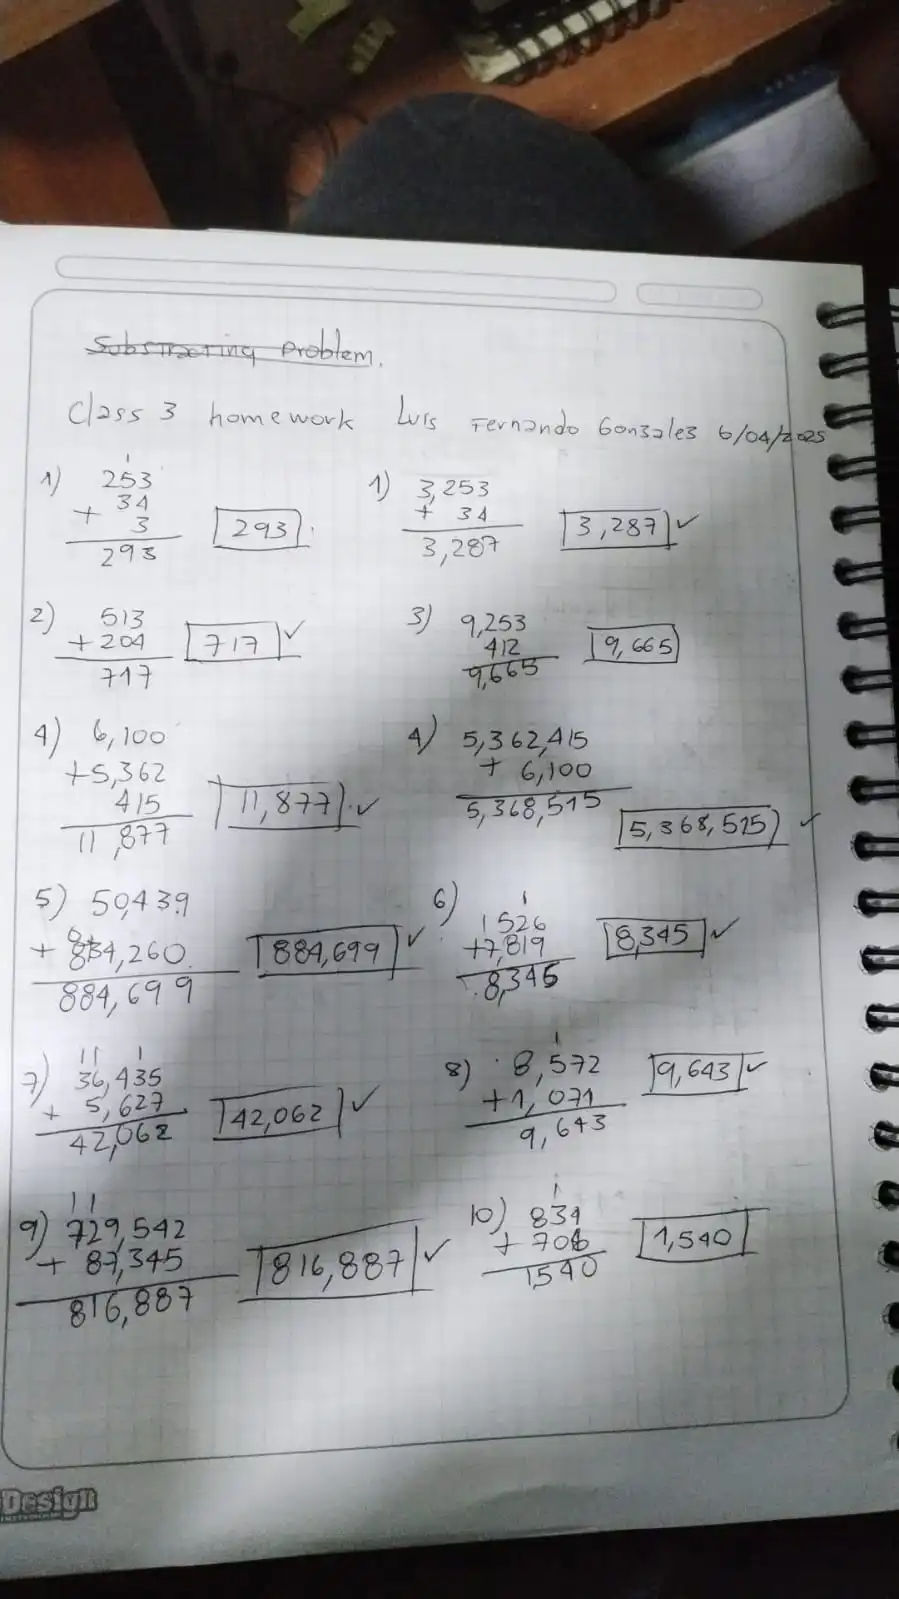 Substracting Problem.
Class 3 homework Luis Fernando Gonzales 6/04/2025
1)
1
253
+ 34
3
293
293
1)
3,253
+ 34
3,287
3,287 ✓
2)
513
+204
717
717 ✓
3)
9,253
412
9,665
9,665
4)
6,100
+5,362
415
11,877
11,877 ✓
4)
5,362,415
+ 6,100
5,368,515
5,368,515 ✓
5)
50,439
+ 834,260
884,699
884,699 ✓
6)
1
1526
+7,819
8,345
8,345 ✓
7)
11 1
36,435
+ 5,627
42,062
42,062 ✓
8)
1
8,572
+1,071
9,643
9,643 ✓
9)
11
729,542
+ 87,345
816,887
816,887 ✓
10)
1
834
+ 706
1540
1,540
Design